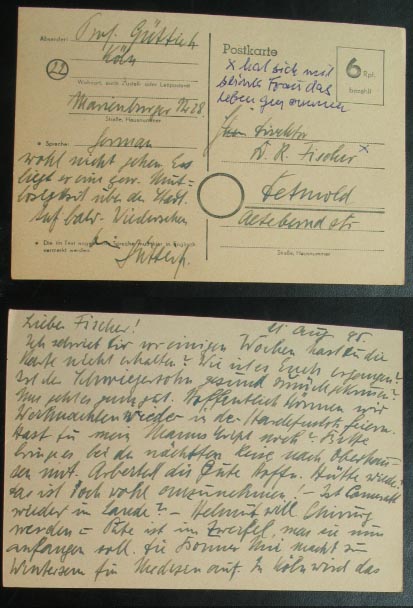 Absender: Prof. Güttich
Köln
22
Wohnort, auch Zustell- oder Leitpostamt
Marienburger Str. 28
Straße, Hausnummer
Sprache: German
wohl nicht gehen. Es
liegt so eine gew. Mut-
losigkeit über der Stadt.
Auf bald. Wiedersehen
Dein
Güttich
Postkarte
6 Rpf.
bezahlt
x hat sich mit
seiner Frau das
Leben genommen
Herrn Direktor
Dr. R. Fischer x
Detmold
Straße, Hausnummer
Lieber Fischer! 21. Aug 45.
Ich schrieb Dir vor einigen Wochen hast Du die
Karte nicht erhalten? Wie ist es Euch ergangen?
Ist der Schwiegersohn gesund zurückgekommen?
Uns geht es ganz gut. Hoffentlich können wir
Weihnachten wieder in der feiern.
Hast Du mein noch? Bitte
bringe es bei der nächsten Reise nach Oberhau-
sen mit. Arbeitet die Gute Hoffn. Hütte wieder?
das ist doch wohl anzunehmen! - Ist
wieder im Lande? - Helmut will Chirurg
werden - ist im Zweifel, was sie nun
anfangen soll. Die Bonner Uni macht zu
Wintersem für Medizin auf. In Köln wird das